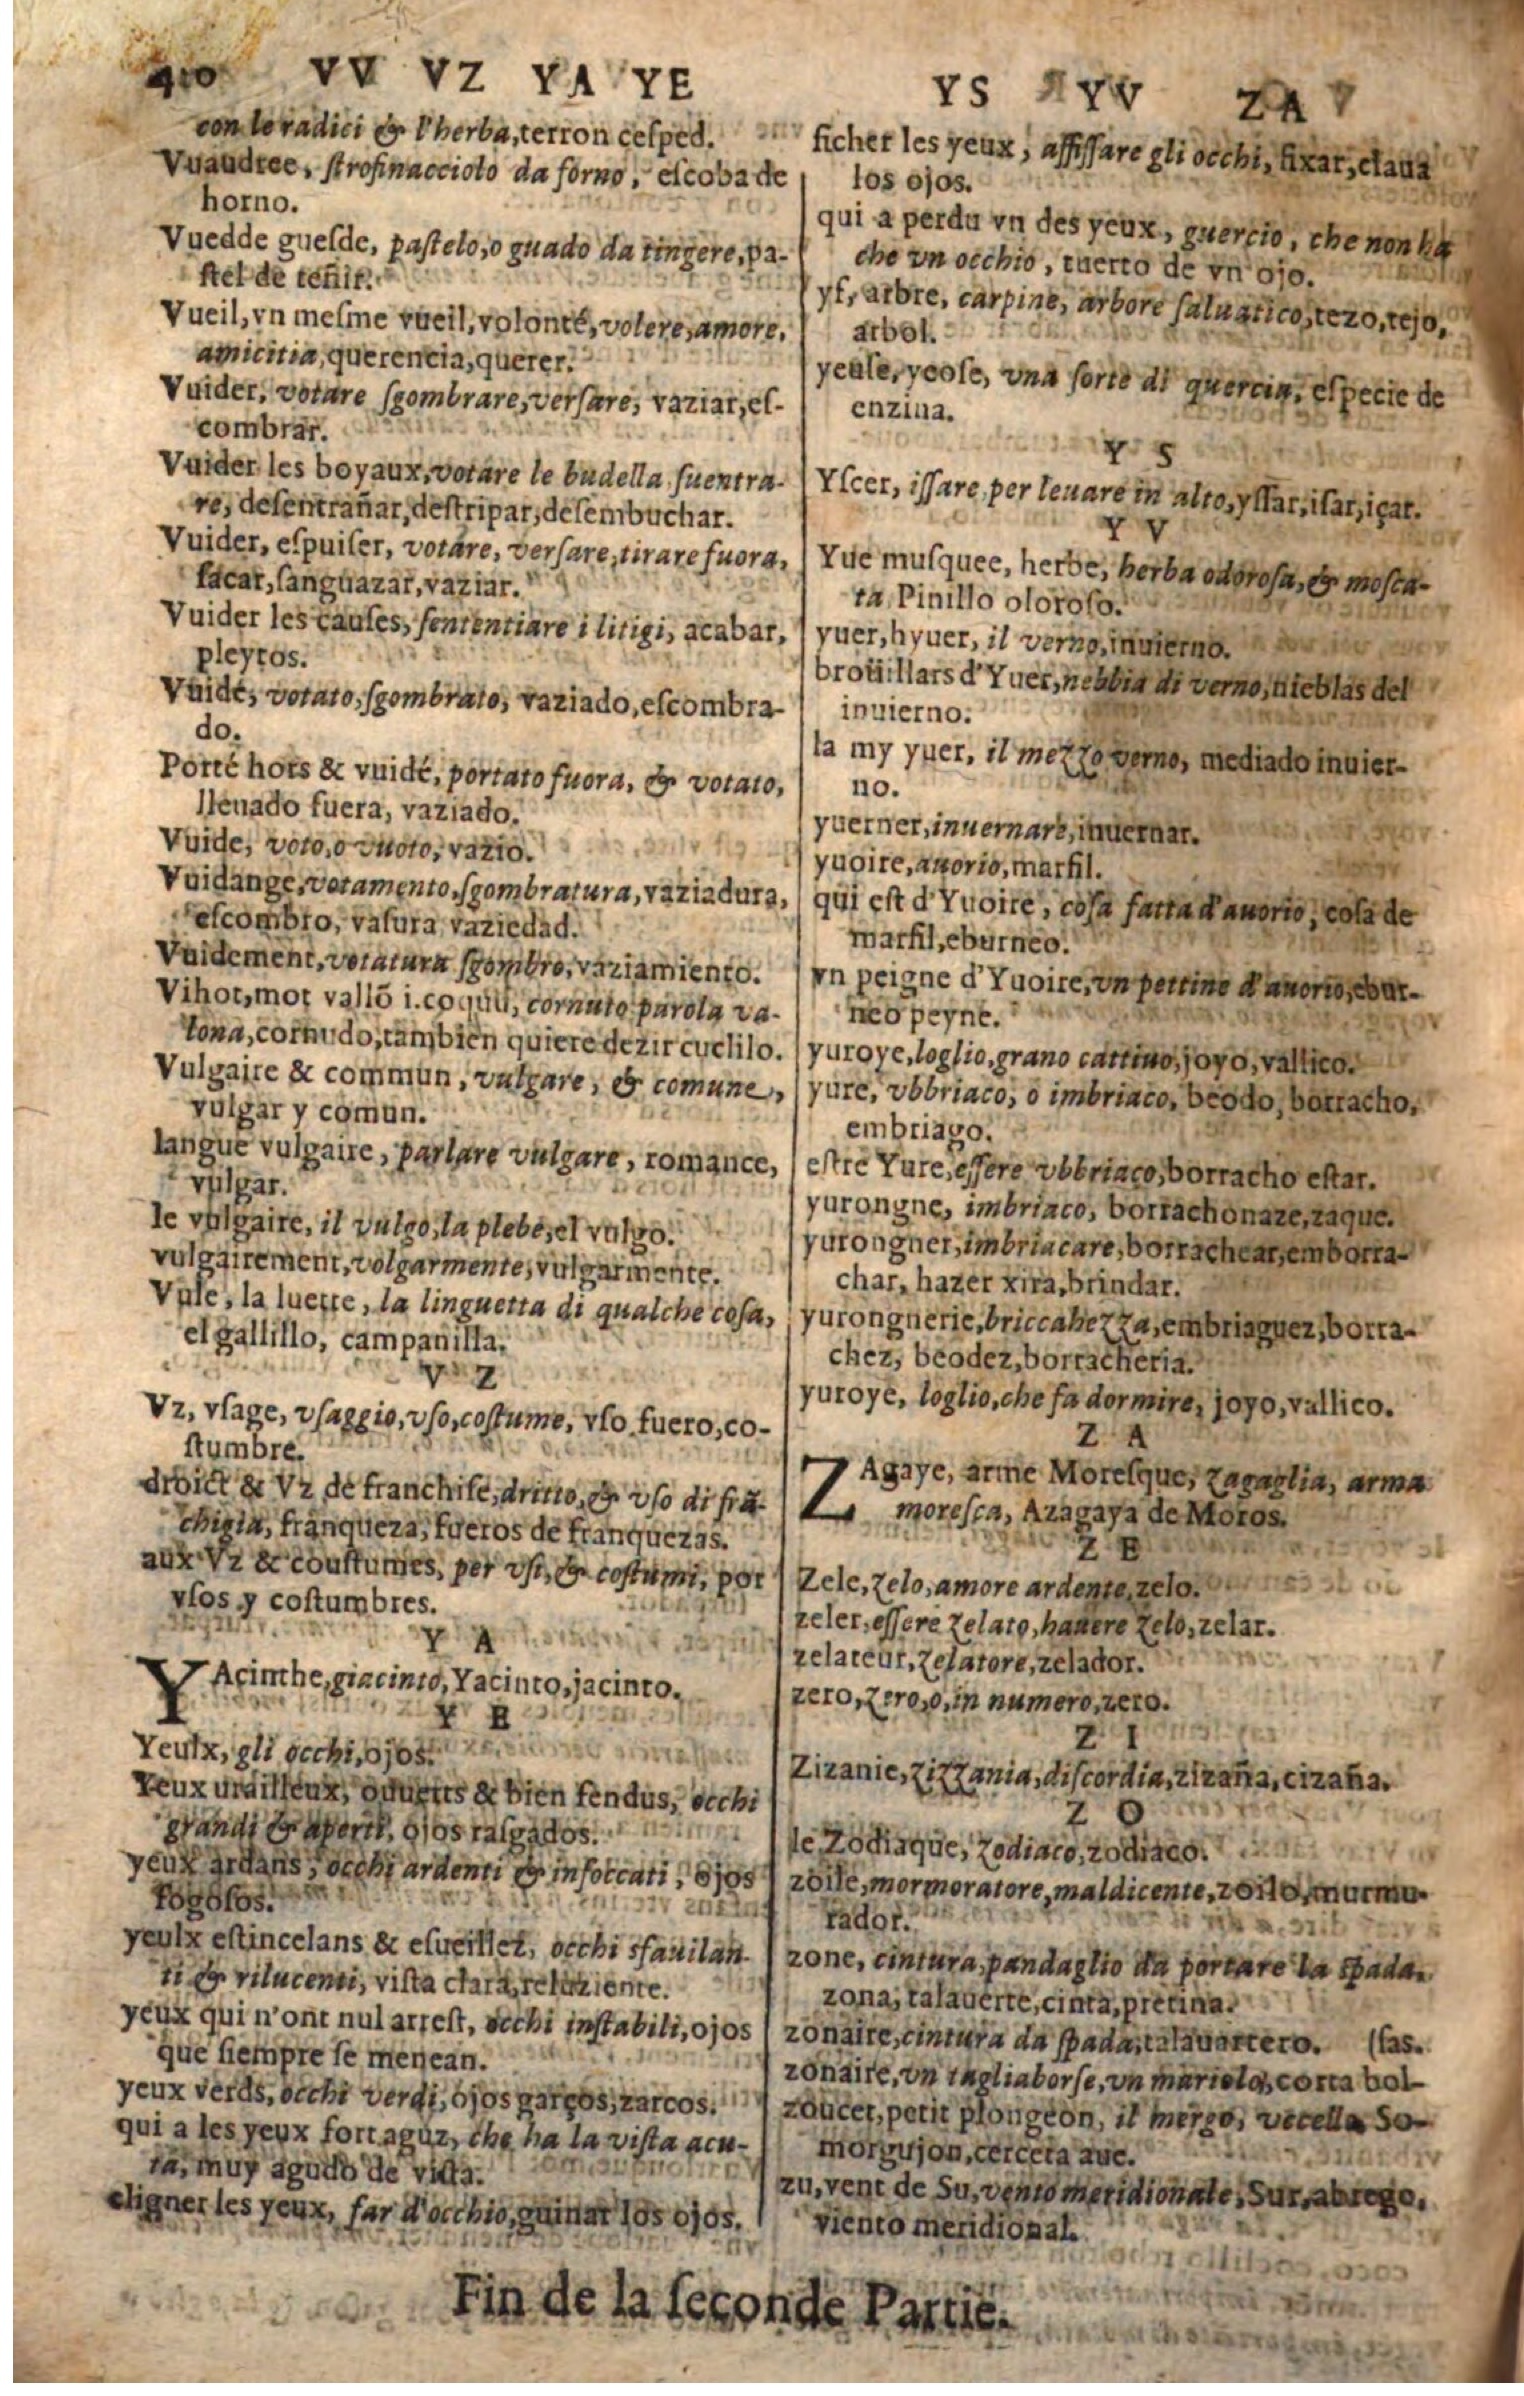 410 VV VZ YA YE
con le radici & l'herba, terron ceſped.
Vuaudree, ſtrofinacciolo da forno, eſcoba de
horno.
Vuedde gueſde, paſtelo, o guado da tingere, pa-
ſtel de teñir.
Vueil, vn meſme vueil, volonté, volere, amore,
amicitia, querencia, querer.
Vuider, votare ſgombrare, verſare, vaziar, eſ-
combrar.
Vuider les boyaux, votare le budella ſuentra-
re, deſentrañar, deſtripar, deſembuchar.
Vuider, eſpuiſer, votare, verſare, tirare fuora,
ſacar, ſanguazar, vaziar.
Vuider les cauſes, ſententiare i litigi, acabar,
pleytos.
Vuidé, votato, ſgombrato, vaziado, eſcombra-
do.
Porté hors & vuidé, portato fuora, & votato,
lleuado fuera, vaziado.
Vuide, voto, o vuoto, vazio.
Vuidange, votamento, ſgombratura, vaziadura,
eſcombro, vaſura vaziedad.
Vuidement, votatura ſgombro, vaziamiento.
Vihot, mot vallõ i. coquu, cornuto parola va-
lona, cornudo, tambien quiere dezir cuclilo.
Vulgaire & commun, vulgare, & comune,
vulgar y comun.
langue vulgaire, parlare vulgare, romance,
vulgar.
le vulgaire, il vulgo, la plebe, el vulgo.
vulgairement, volgarmente, vulgarmente.
Vule, la luette, la linguetta di qualche coſa,
el gallillo, campanilla.
V Z
Vz, vſage, vſaggio, vſo, coſtume, vſo fuero, co-
ſtumbre.
droict & Vz de franchiſe, dritto, & vſo di frã-
chigia, franqueza, fueros de franquezas.
aux Vz & couſtumes, per vſi, & coſtumi, por
vſos y coſtumbres.
Y A
YAcinthe, giacinto, Yacinto, jacinto.
Y E
Yeulx, gli occhi, ojos.
Yeux urailleux, ouuerts & bien fendus, occhi
grandi & aperti, ojos raſgados.
yeux ardans, occhi ardenti & infoccati, ojos
fogoſos.
yeulx eſtincelans & eſueillez, occhi sfauilan-
ti & rilucenti, viſta clara, reluziente.
yeux qui n'ont nul arreſt, occhi inſtabili, ojos
que ſiempre ſe menean.
yeux verds, occhi verdi, ojos garços, zarcos.
qui a les yeux fort aguz, che ha la viſta acu-
ta, muy agudo de viſta.
cligner les yeux, far d'occhio, guinar los ojos.
YS YV ZA
ficher les yeux, affiſſare gli occhi, fixar, claua
los ojos.
qui a perdu vn des yeux, guercio, che non ha
che vn occhio, tuerto de vn ojo.
yf, arbre, carpine, arbore ſaluatico, tezo, tejo,
arbol.
yeuſe, yeoſe, vna ſorte di quercia, eſpecie de
enzina.
Y S
Yſcer, iſſare, per leuare in alto, yſſar, iſar, içar.
Y V
Yue muſquee, herbe, herba odoroſa, & moſca-
ta Pinillo oloroſo.
yuer, hyuer, il verno, inuierno.
broüillars d'Yuer, nebbia di verno, nieblas del
inuierno.
la my yuer, il mezzo verno, mediado inuier-
no.
yuerner, inuernare, inuernar.
yuoire, auorio, marfil.
qui eſt d'Yuoire, coſa fatta d'auorio, coſa de
marfil, eburneo.
vn peigne d'Yuoire, vn pettine d'auorio, ebur-
neo peyne.
yuroye, loglio, grano cattiuo, joyo, vallico.
yure, vbbriaco, o imbriaco, beodo, borracho,
embriago.
eſtre Yure, eſſere vbbriaco, borracho eſtar.
yurongne, imbriaco, borrachonaze, zaque.
yurongner, imbriacare, borrachear, emborra-
char, hazer xira, brindar.
yurongnerie, briccahezza, embriaguez, borra-
chez, beodez, borracheria.
yuroye, loglio, che fa dormire, joyo, vallico.
Z A
ZAgaye, arme Moreſque, zagaglia, arma
moreſca, Azagaya de Moros.
Z E
Zele, zelo, amore ardente, zelo.
zeler, eſſere zelato, hauere zelo, zelar.
zelateur, zelatore, zelador.
zero, zero, o, in numero, zero.
Z I
Zizanie, zizzania, diſcordia, zizaña, cizaña.
Z O
le Zodiaque, zodiaco, zodiaco.
zoile, mormoratore, maldicente, zoilo, murmu-
rador.
zone, cintura, pandaglio da portare la ſpada,
zona, talauerte, cinta, pretina.
zonaire, cintura da ſpada, talauartero. (ſas.
zonaire, vn tagliaborſe, vn mariolo, corta bol-
zoucet, petit plongeon, il mergo, vccello So-
morgujon, cerceta aue.
zu, vent de Su, vento meridionale, Sur, abrego,
viento meridional.
Fin de la ſeconde Partie.